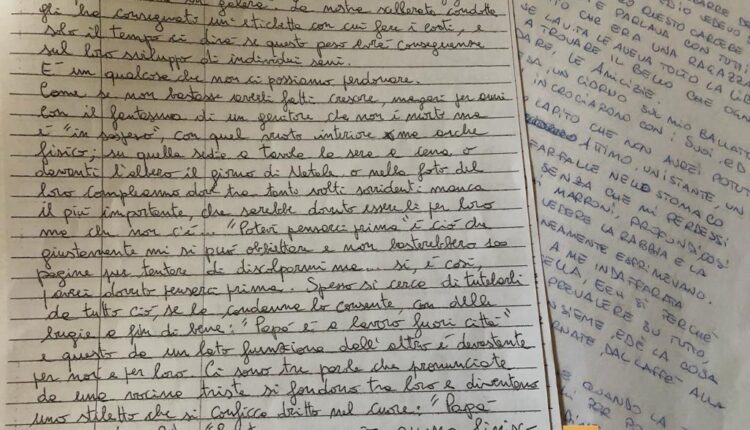 in galera. La nostra scellerata condotta
gli ha consegnato un'etichetta con cui fare i conti, e
solo il tempo ci dirà se questo peso avrà conseguenze
sul loro sviluppo di individui sani.
È un qualcosa che non ci possiamo perdonare.
Come se non bastasse averli fatti crescere, magari per anni
con il fantasma di un genitore che non è morto ma
è "in sospeso", con quel vuoto interiore ma anche
fisico; su quella sedia a tavola la sera a cena, o
davanti l'albero il giorno di Natale o nella foto del
loro compleanno dove tra tanti volti sorridenti manca
il più importante, che sarebbe dovuto esserci per loro
ma che non c'è... "Potevi pensarci prima" è ciò che
giustamente mi si può obbiettare e non basterebbero 100
pagine per tentare di discolparmi ma... sì, è così,
avrei dovuto pensarci prima. Spesso si cerca di tutelarli
da tutto ciò, se la condanna lo consente, con delle
bugie a fin di bene: "Papà è a lavoro fuori città"
e questo da un lato funziona dall'altro è devastante
per noi e per loro. Ci sono tre parole che pronunciate
da una vocina triste si fondono tra loro e diventano
uno stiletto che si conficca dritto nel cuore: "Papà
QUESTO CARCERE
E PARLAVA CON TUTTI
CHE ERA UNA RAGAZZA
SE LA VITA LE AVEVA TOLTO LA
A TROVARE IL BELLO CHE OGNI
DARE, LE AMICIZIE.
UN GIORNO SUL MIO BALLATOIO
INCROCIARONO CON I SUOI, ED
CAPITO CHE NON AVREI POTUTO
ATTIMO, UN ISTANTE, UN
FARFALLE NELLO STOMACO
SENZA CHE MI PERDESSI
MARRONI, PROFONDI, COSÌ
VEDERE LA RABBIA E LA
ESPRIMEVANO.
A ME INDAFFARATA
EEH SÌ PERCHÉ
PREVALERE SU TUTTO,
INSIEME, ED È LA COSA
DAL CAFFÈ ALLA
QUANDO LA